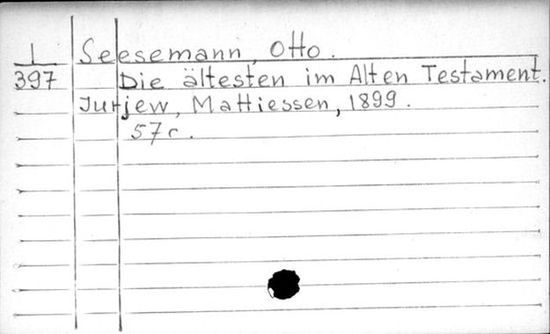 I Seesemann, Otto.
397 Die ältesten im Alten Testament.
Jurjew, Mattiessen, 1899.
57 c.